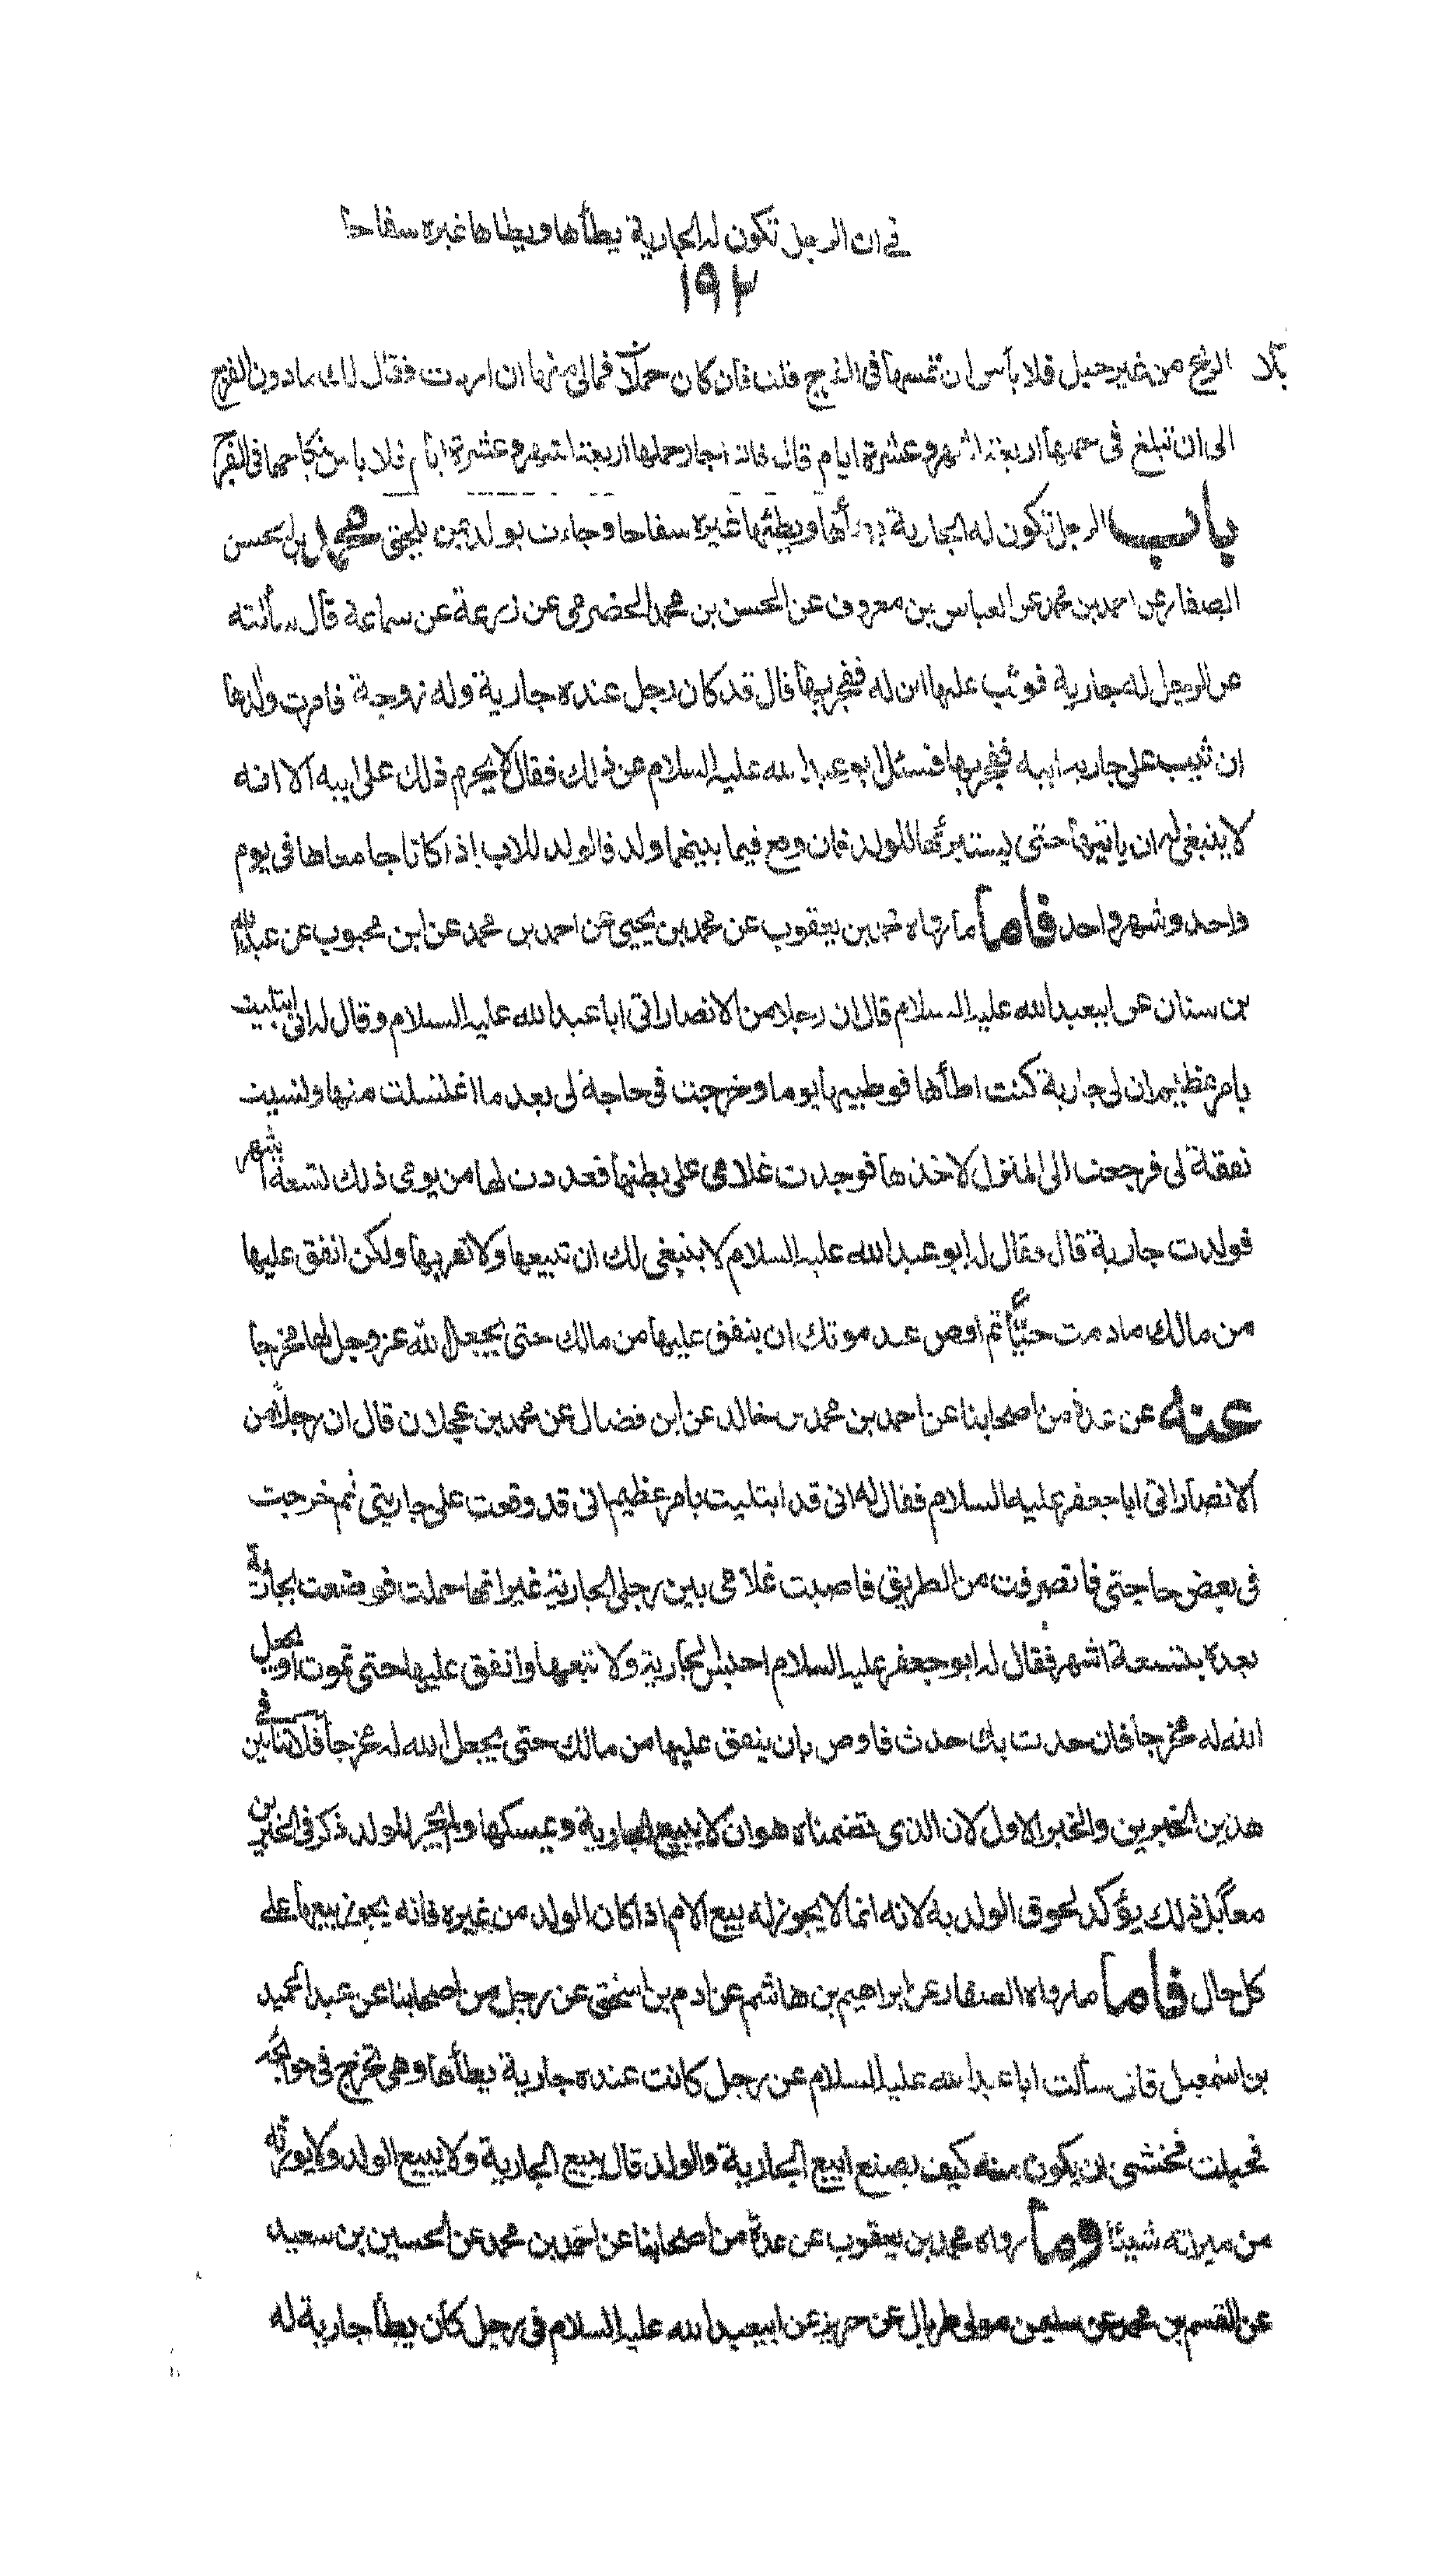 في ان الرجل تكون له الجارية يطأها ويطاها غيره سفاحا
١٩٢
الريح من غير حبل فلا بأس ان تمسها في الفرج قلت فان كان حملا فمالي منها ان اردت فقال لك ما دون الفرج
الى ان تبلغ في حملها اربعة اشهر وعشرة ايام قال فاذا جاز حملها اربعة اشهر وعشرة ايام فلا باس بنكاحها في الفرج
باب الرجل تكون له الجارية يطأها ويطئها غيره سفاحا وجاءت بولد بمن يلحق محمد بن الحسن
الصفار عن احمد بن محمد عن العباس بن معروف عن الحسن بن محمد الحضرمي عن زرعة عن سماعة قال سألته
عن الرجل له جارية فوثب عليها ابن له ففجر بها قال قد كان رجل عنده جارية وله زوجة فامرت ولدها
ان يثب على جارية ابيه ففجر بها فسئل ابو عبد الله عليه السلام عن ذلك فقال لا يحرم ذلك على ابيه الا انه
لا ينبغي له ان ياتيها حتى يستبرئها للولد فان وقع فيما بينهما ولد فالولد للاب اذا كانا جامعاها في يوم
واحد وشهر واحد فاما ما رواه محمد بن يعقوب عن محمد بن يحيى عن احمد بن محمد عن ابن محبوب عن عبد الله
بن سنان عن ابيعبد الله عليه السلام قال ان رجلا من الانصار اتى ابا عبد الله عليه السلام وقال له اني ابتليت
بامر عظيم ان لي جارية كنت اطأها فوطيتها يوما وخرجت في حاجة لي بعد ما اغتسلت منها ونسيت
نفقة لي فرجعت الى المنزل لاخذها فوجدت غلامي على بطنها فعددت لها من يومي ذلك تسعة اشهر
فولدت جارية قال فقال له ابو عبد الله عليه السلام لا ينبغي لك ان تبيعها ولا تقربها ولكن انفق عليها
من مالك ما دمت حيّا ثم اوص عند موتك ان ينفق عليها من مالك حتى يجعل الله عز وجل لها مخرجا
عنه عن عدة من اصحابنا عن احمد بن محمد بن خالد عن ابن فضال عن محمد بن عجلان قال ان رجلا من
الانصار اتى ابا جعفر عليه السلام فقال له اني قد ابتليت بامر عظيم اني قد وقعت على جاريتي ثم خرجت
في بعض حاجتي فانصرفت من الطريق فاصبت غلامي بين رجلي الجارية غير انها حملت فوضعت بجارية
بعده بتسعة اشهر فقال له ابو جعفر عليه السلام احبس الجارية ولا تبعها وانفق عليها حتى تموت او يجعل
الله له مخرجا فان حدث بك حدث فاوص بان ينفق عليها من مالك حتى يجعل الله له مخرجا فلا تنافي بين
هذين الخبرين والخبر الاول لان الذي تضمناه هو ان لا يبيع الجارية ويمسكها ولم يجر للولد ذكر في الخبرين
معا بل ذلك يؤكد لحوق الولد به لانه انما لا يجوز له بيع الام اذا كان الولد من غيره فانه يجوز بيعها على
كل حال فاما ما رواه الصفار عن ابراهيم بن هاشم عن ادم بن اسحق عن رجل من اصحابنا عن عبد الحميد
بن اسمعيل قال سألت ابا عبد الله عليه السلام عن رجل كانت عنده جارية يطأها وهي تخرج في حوائجه
فحبلت فخشي ان يكون منه كيف يصنع ايبيع الجارية والولد قال يبيع الجارية ولا يبيع الولد ولا يورثه
من ميراثه شيئا وما رواه محمد بن يعقوب عن عدة من اصحابنا عن احمد بن محمد عن الحسين بن سعيد
عن القسم بن محمد عن سليمن مولى طربال عن حريز عن ابيعبد الله عليه السلام في رجل كان يطأ جارية له